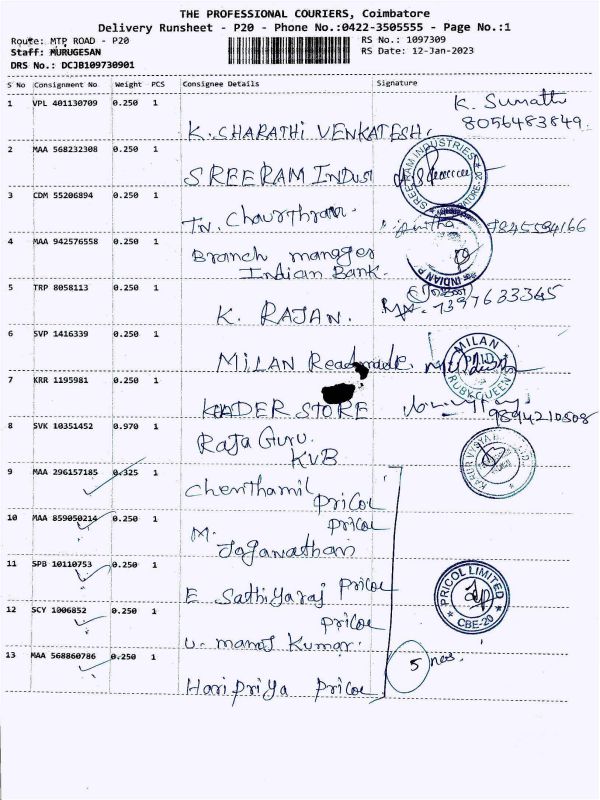 THE PROFESSIONAL COURIERS, Coimbatore
Delivery Runsheet - P20 - Phone No.:0422-3505555 - Page No.:1
Route: MTP ROAD - P20
RS No.: 1097309
Staff: MURUGESAN
RS Date: 12-Jan-2023
DRS No.: DCJB109730901
S No Consignment No. Weight PCS Consignee Details Signature
1 VPL 401130709 0.250 1
K. Sumathi
8056483849.
K. SHARATHI VENKATESH.
2 MAA 568232308 0.250 1
SREERAM INDUST
SREERAM INDUSTRIES
3 CDM 55206894 0.250 1
4 MAA 942576558 0.250 1
Branch manager
Indian Bank.
5 TRP 8058113 0.250 1
K. RAJAN.
7397633365
6 SVP 1416339 0.250 1
MILAN Readymade
MILAN
PAID
7 KRR 1195981 0.250 1
KHADER STORE
9894210508
8 SVK 10351452 0.970 1
Raja Guru.
KVB
9 MAA 296157185 0.325 1
Chenthamil Pricol
10 MAA 859050214 0.250 1
Pricol
M. Joganathan
11 SPB 10110753 0.250 1
E. Sathiyaraj Pricol
PRICOL LIMITED
CBE-20
12 SCY 1006852 0.250 1
Pricol
U. manoj Kumar.
13 MAA 568860786 0.250 1
5 nos.
Haripriya Pricol